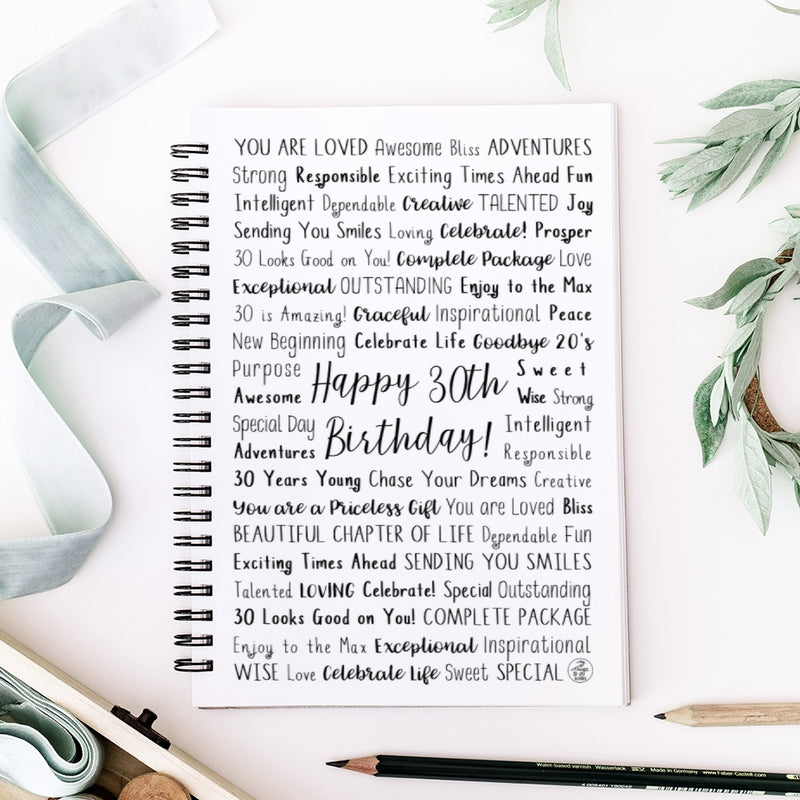 YOU ARE LOVED Awesome Bliss ADVENTURES
Strong Responsible Exciting Times Ahead Fun
Intelligent Dependable Creative TALENTED Joy
Sending You Smiles Loving Celebrate! Prosper
30 Looks Good on You! Complete Package Love
Exceptional OUTSTANDING Enjoy to the Max
30 is Amazing! Graceful Inspirational Peace
New Beginning Celebrate Life Goodbye 20's
Purpose Happy 30th Sweet
Awesome Wise Strong
Special Day Birthday! Intelligent
Adventures Responsible
30 Years Young Chase Your Dreams Creative
You are a Priceless Gift You are Loved Bliss
BEAUTIFUL CHAPTER OF LIFE Dependable Fun
Exciting Times Ahead SENDING YOU SMILES
Talented LOVING Celebrate! Special Outstanding
30 Looks Good on You! COMPLETE PACKAGE
Enjoy to the Max Exceptional Inspirational
WISE Love Celebrate Life Sweet SPECIAL
Water-based varnish Wasserlack Made in Germany www.Faber-Castell.com